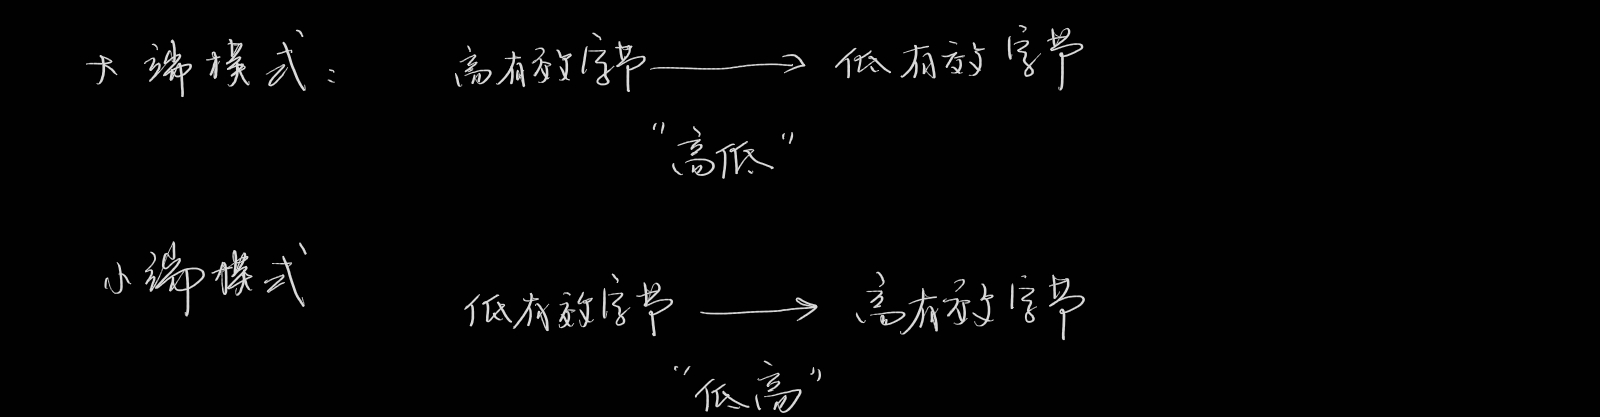 大端模式： 高有效字节 → 低有效字节
"高低"
小端模式 低有效字节 → 高有效字节
"低高"